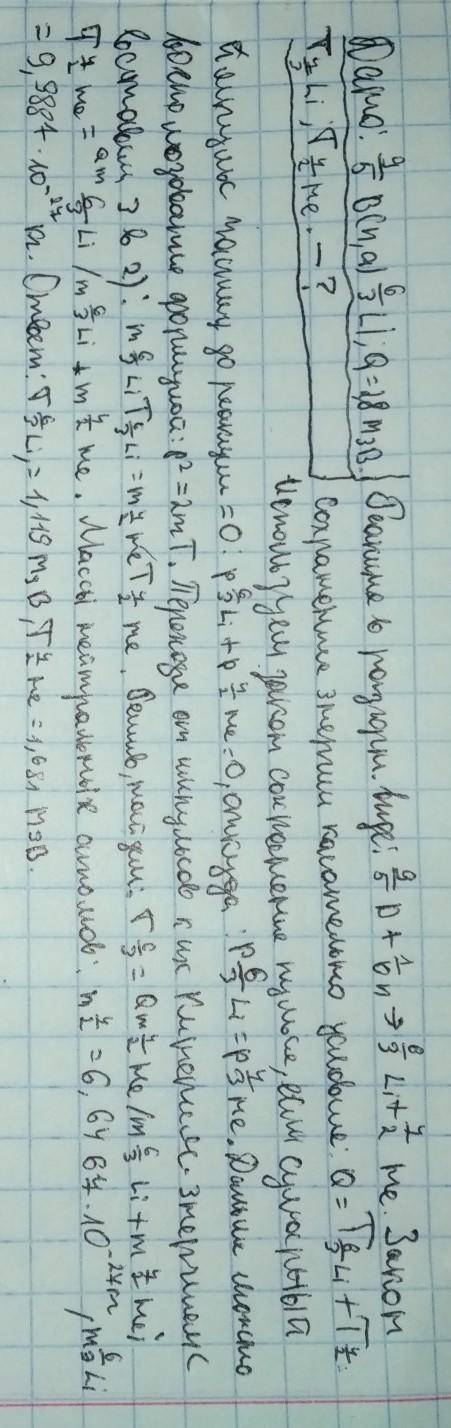 Дано: ⁹₅B(n,a) ⁶₃Li; Q=2,8 МэВ. Реакция в разверн. виде: ⁹₅B + ¹₀n → ⁶₃Li + ⁴₂He. Закон
T⁶₃Li; T⁴₂He. — ? сохранения энергии касательно условие: Q = T⁶₃Li + T⁴₂.
Используем закон сохранение пульса, если суммарный
импульс частиц до реакции = 0: p⁶₃Li + p⁴₂He = 0, откуда: p⁶₃Li = p⁴₂He. Дальше можно
воспользование формулой: p² = 2mT. Переходя от импульсов к их кинетич. энергиям с
вставим 3 в 2): m⁶₃Li T⁶₃Li = m⁴₂He T⁴₂He. Решив, найдем: T⁶₃ = Qm⁴₂He/m⁶₃Li + m⁴₂He;
T⁴₂He = Qm⁶₃Li/m⁶₃Li + m⁴₂He. Массы нейтральных атомов: m⁴₂ = 6,6467·10⁻²⁷ кг, m⁶₃Li
= 9,9887·10⁻²⁷ кг. Ответ: T⁶₃Li, = 1,119 МэВ, T⁴₂He = 1,681 МэВ.